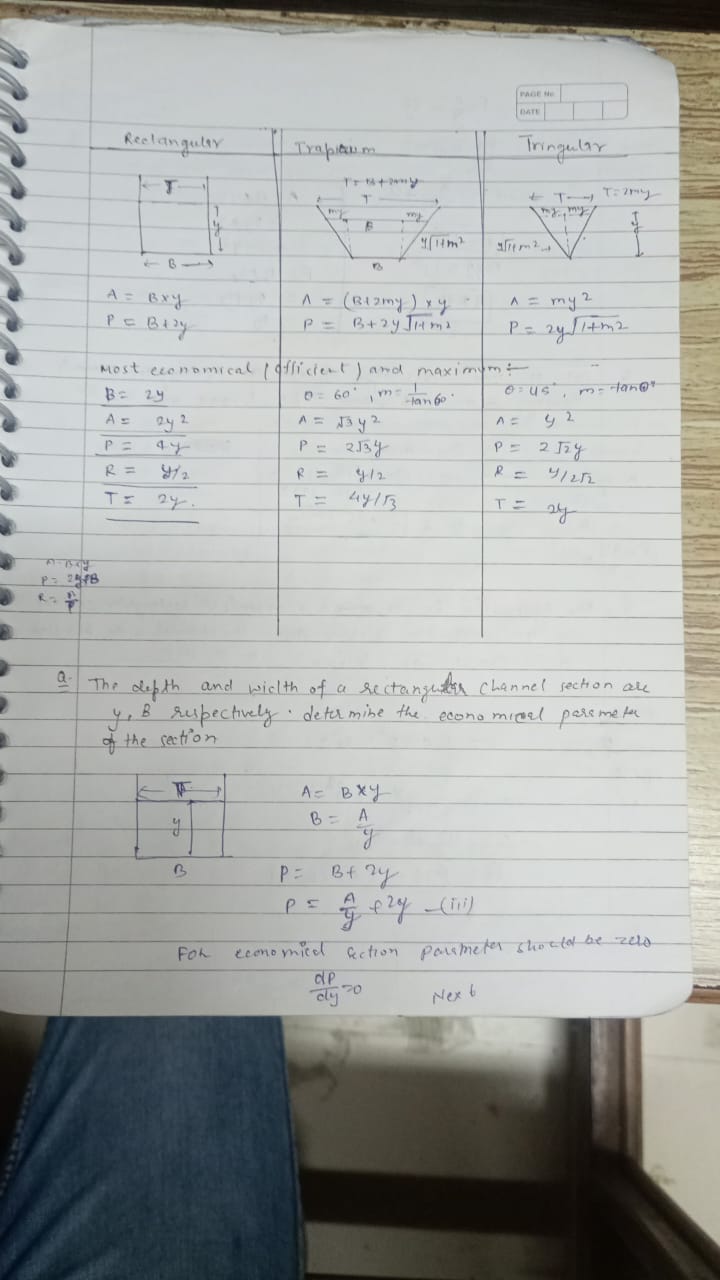 PAGE No.
DATE
Rectangular
T
y
B
A = B×y
P = B+2y
Trapium
T = B+2my
T
my
B
my
y√1+m²
B
A = (B+2my) × y
P = B+2y√1+m²
Tringular
T
T=2my
my
my
y
y√1+m²
A = my²
P = 2y√1+m²
Most economical (efficient) and maximum:-
B = 2y
A = 2y²
P = 4y
R = y/2
T = 2y.
θ = 60°, m = 1/tan60°
A = √3y²
P = 2√3y
R = y/2
T = 4y/√3
θ = 45°, m = tanθ°
A = y²
P = 2√2y
R = y/2√2
T = 2y
A = B×y
P = 2y+B
R = A/P
Q. The depth and width of a rectangular channel section are
y, B respectively. determine the economical parameter
of the section
T
y
B
A = B×y
B = A/y
P = B+2y
P = A/y + 2y —(iii)
For economicl section parameter should be zero
dP/dy = 0
Next